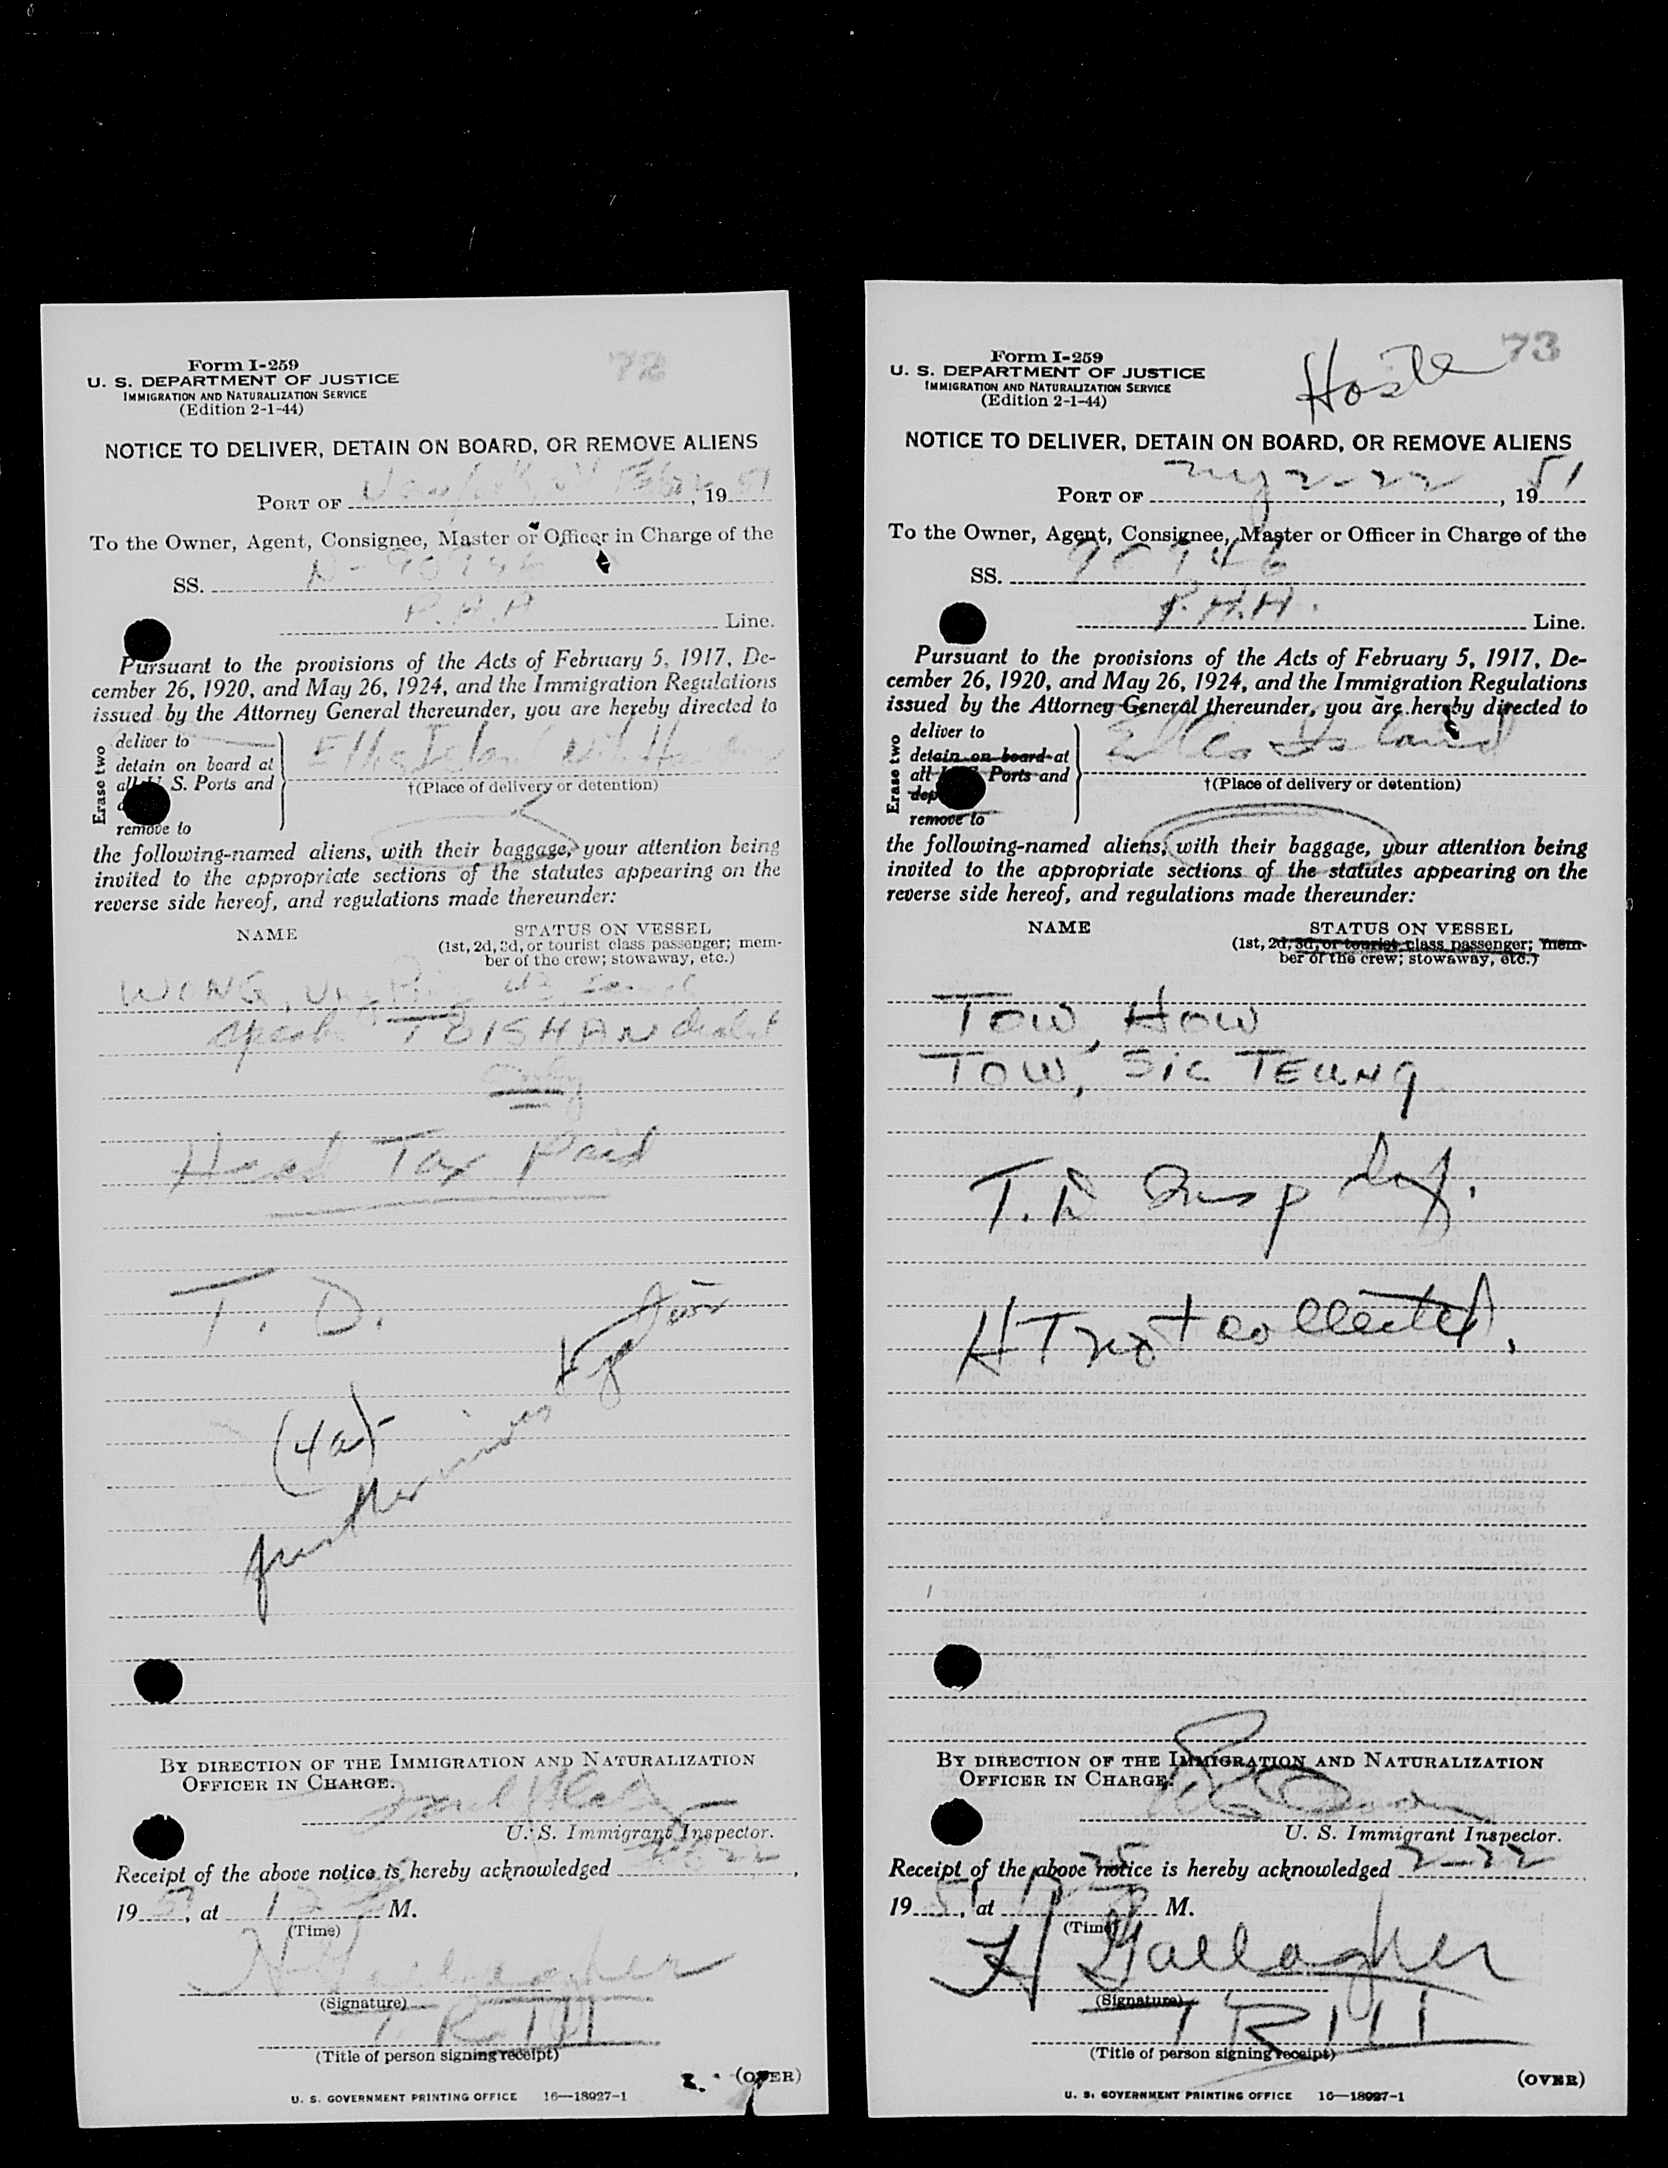 72
Form I-259
U. S. DEPARTMENT OF JUSTICE
IMMIGRATION AND NATURALIZATION SERVICE
(Edition 2-1-44)
NOTICE TO DELIVER, DETAIN ON BOARD, OR REMOVE ALIENS
PORT OF 19 51
To the Owner, Agent, Consignee, Master or Officer in Charge of the
SS. N-90946
P.A.A Line.
Pursuant to the provisions of the Acts of February 5, 1917, De-
cember 26, 1920, and May 26, 1924, and the Immigration Regulations
issued by the Attorney General thereunder, you are hereby directed to
Erase two
deliver to
detain on board at
all U. S. Ports and
remove to
Ellis
†(Place of delivery or detention)
the following-named aliens, with their baggage, your attention being
invited to the appropriate sections of the statutes appearing on the
reverse side hereof, and regulations made thereunder:
NAME STATUS ON VESSEL
(1st, 2d, 3d, or tourist class passenger; mem-
ber of the crew; stowaway, etc.)
WING,
speaks TOISHAN dialect
only
Head Tax Paid
T. D.
(4a)
further
BY DIRECTION OF THE IMMIGRATION AND NATURALIZATION
OFFICER IN CHARGE.
U. S. Immigrant Inspector.
Receipt of the above notice is hereby acknowledged
19 51, at M.
(Time)
Gallagher
(Signature)
(Title of person signing receipt)
(OVER)
U. S. GOVERNMENT PRINTING OFFICE 16—18927-1
73
Form I-259
U. S. DEPARTMENT OF JUSTICE
IMMIGRATION AND NATURALIZATION SERVICE
(Edition 2-1-44)
NOTICE TO DELIVER, DETAIN ON BOARD, OR REMOVE ALIENS
PORT OF NY 2-22, 19 51
To the Owner, Agent, Consignee, Master or Officer in Charge of the
SS. 90946
P.A.A. Line.
Pursuant to the provisions of the Acts of February 5, 1917, De-
cember 26, 1920, and May 26, 1924, and the Immigration Regulations
issued by the Attorney General thereunder, you are hereby directed to
Erase two
deliver to
detain on board at
all Ports and
remove to
Ellis Island
†(Place of delivery or detention)
the following-named aliens, with their baggage, your attention being
invited to the appropriate sections of the statutes appearing on the
reverse side hereof, and regulations made thereunder:
NAME STATUS ON VESSEL
(1st, 2d, 3d, or tourist class passenger; mem-
ber of the crew; stowaway, etc.)
TOW, HOW
TOW, SIC TEUNG
T. D Insp
HT not collected.
BY DIRECTION OF THE IMMIGRATION AND NATURALIZATION
OFFICER IN CHARGE.
U. S. Immigrant Inspector.
Receipt of the above notice is hereby acknowledged 2-22
19 51, at M.
(Time)
Gallagher
(Signature)
(Title of person signing receipt)
(OVER)
U. S. GOVERNMENT PRINTING OFFICE 16—18927-1